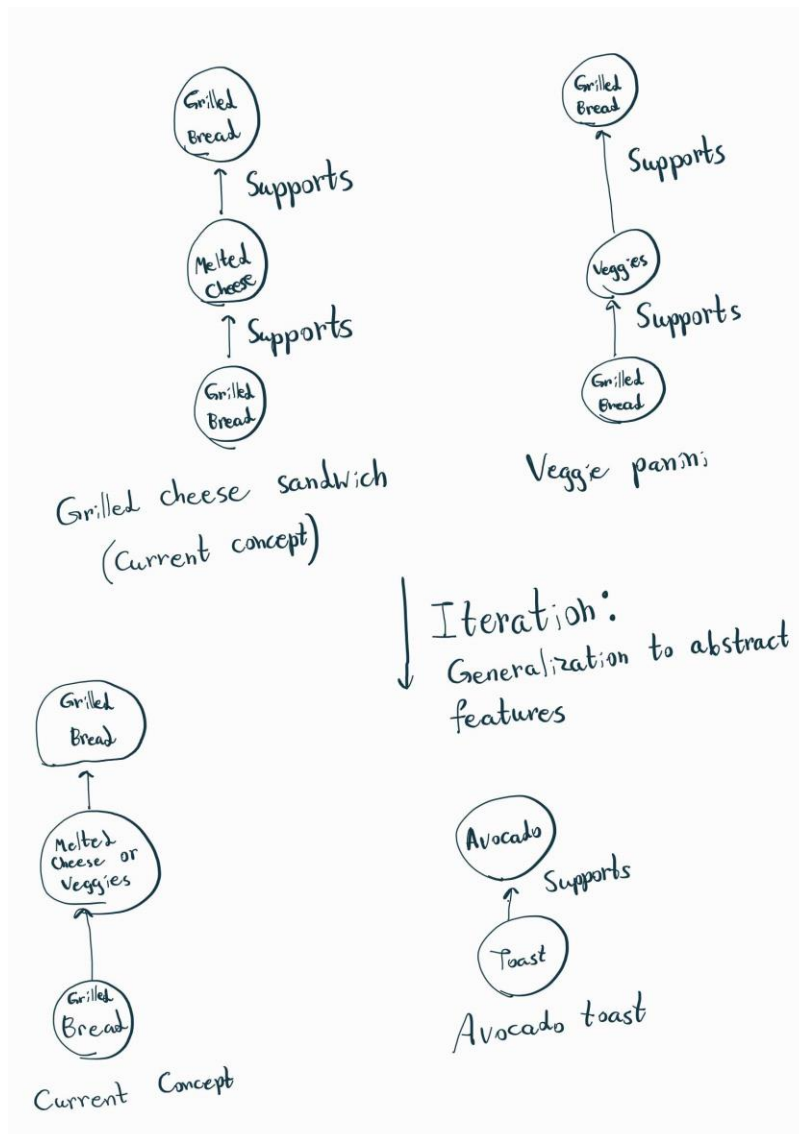 Grilled
Bread
Supports
Melted
Cheese
Supports
Grilled
Bread
Grilled cheese sandwich
(Current concept)
Grilled
Bread
Supports
Veggies
Supports
Grilled
Bread
Veggie panini
Iteration:
Generalization to abstract
features
Grilled
Bread
Melted
Cheese or
Veggies
Grilled
Bread
Current Concept
Avocado
Supports
Toast
Avocado toast